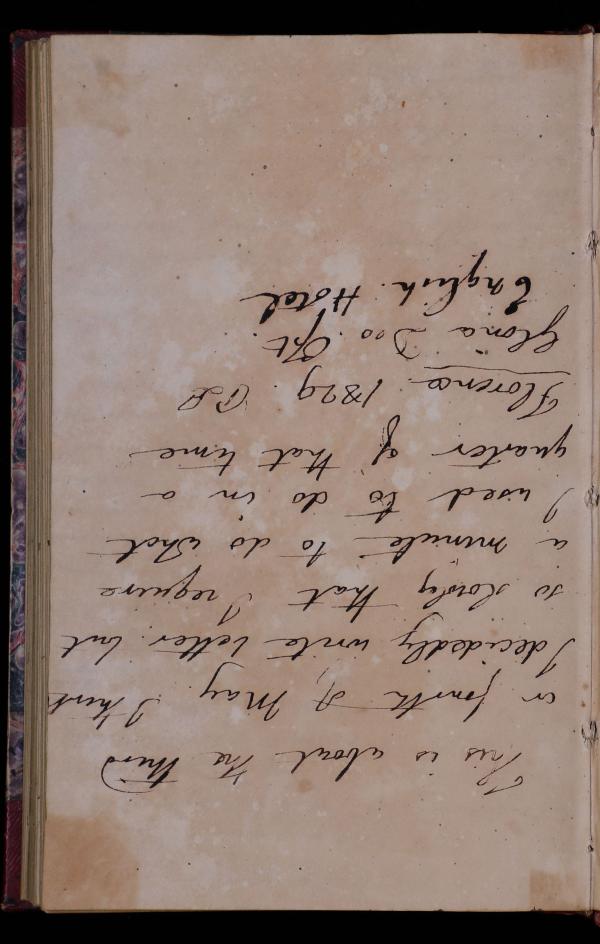 This is about the third
or fourth of May. I think
I decidedly write better but
so slowly that I require
a minute to do what
I used to do in a
quarter of that time
Florence 1829.
Gloria Deo
English Hotel